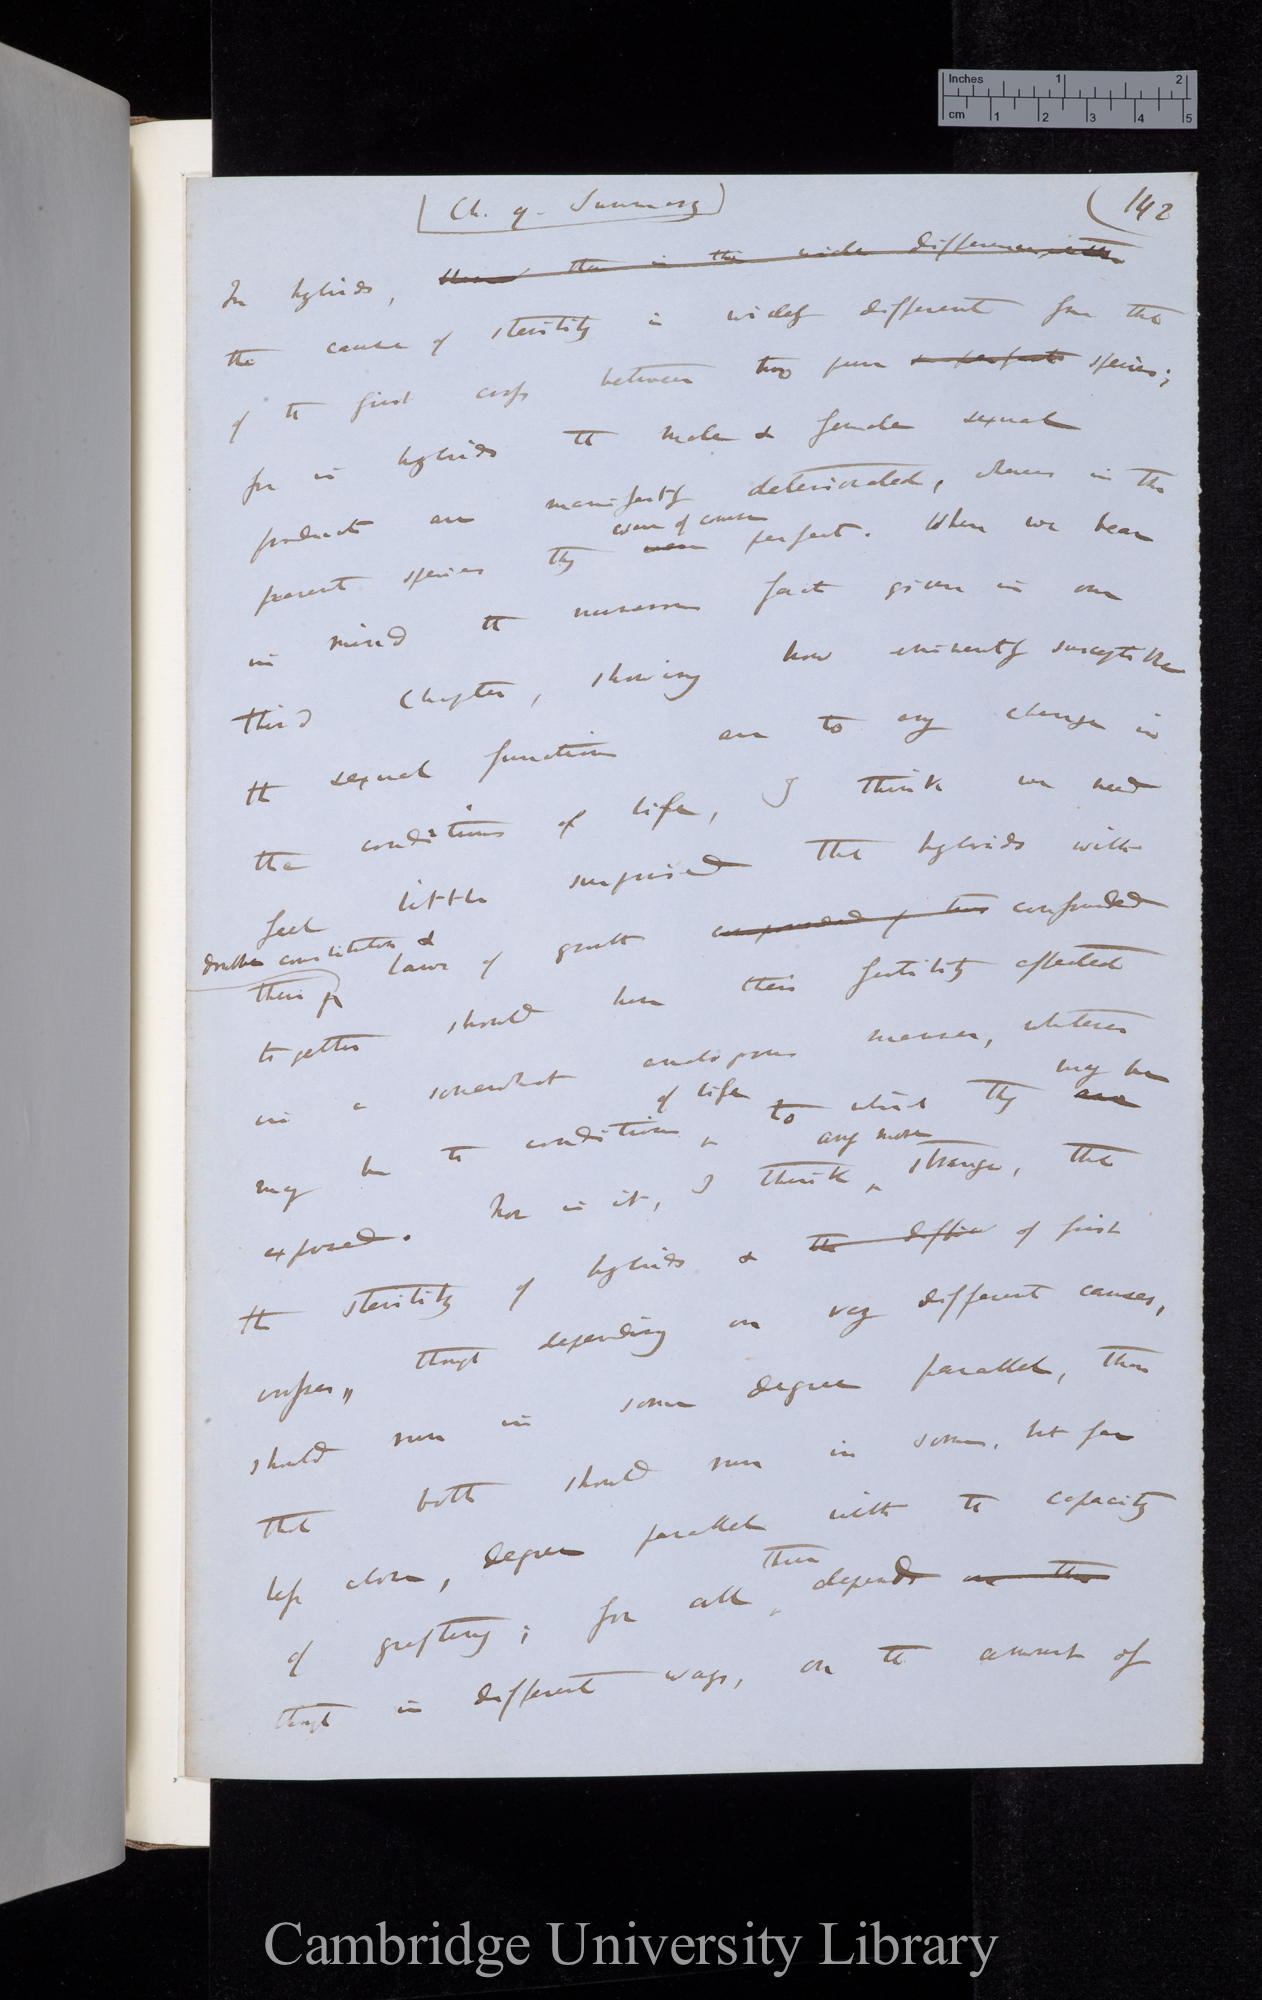 Inches 1 2
cm 1 2 3 4 5
Ch. 9. Summary
142
In hybrids, there then is the wide difference, with
the cause of sterility is widely different from the
of the first cross between two pure & perfect species;
for in hybrids the male & female sexual
products are manifestly deteriorated, whereas in the
were of course
parent species they were perfect. When we bear
in mind the numerous facts given in our
third Chapter, showing how eminently susceptible
the sexual functions are to any change in
the conditions of life, I think we need
feel little surprised that hybrids with
double constitution &
their laws of growth compounded of two confounded
together should have their fertility affected
in a somewhat analogous manner, whatever
of life may be
may be the conditions to which they are
any more
exposed. Nor is it, I think, strange, that
the sterility of hybrids & the of first
crosses, though depending on very different causes,
should run in some degree parallel, than
that both should run in some, but far
less close, degree parallel with the capacity
these
of grafting; for all depends on the
though in different ways, on the amount of
Cambridge University Library